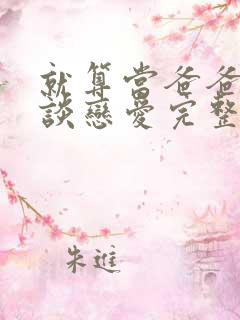 就算當爸爸
談戀愛完整
朱進